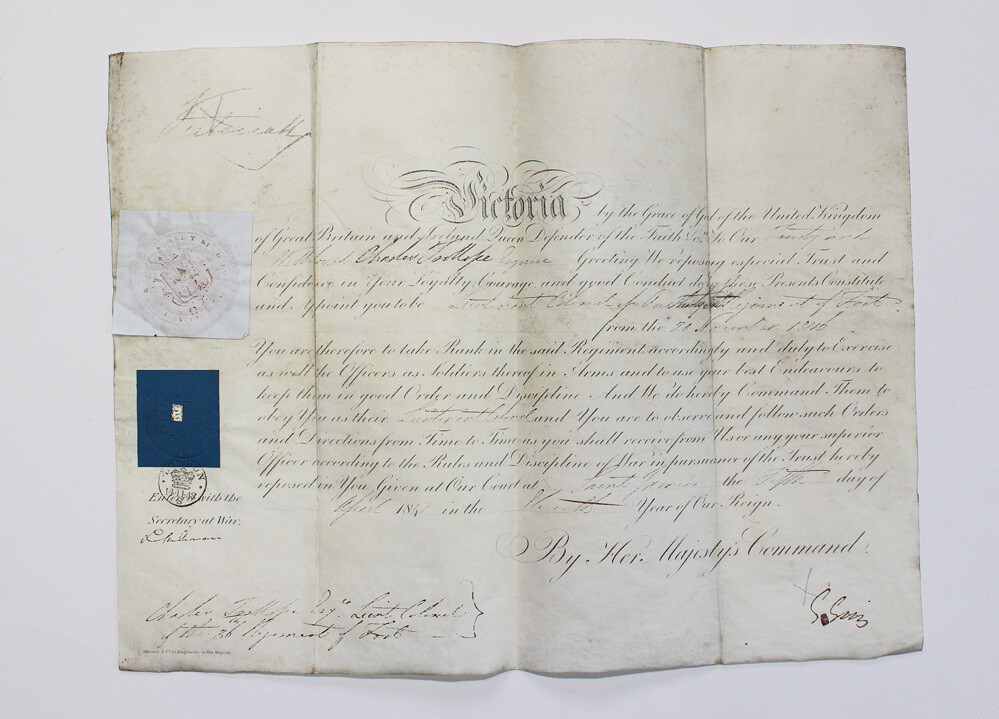 Victoria R
Victoria by the Grace of God of the United Kingdom
of Great Britain and Ireland Queen Defender of the Faith &c.ª To Our Trusty and
Charles Trollope Esquire Greeting We reposing especial Trust and
Confidence in Your Loyalty Courage and good Conduct do by these Presents Constitute
and Appoint you to be Lieutenant Colonel of Our Regiment of Foot
from the 20 November 184
You are therefore to take Rank in the said Regiment accordingly and duly to Exercise
as well the Officers as Soldiers thereof in Arms and to use your best Endeavours to
keep them in good Order and Discipline And We do hereby Command Them to
obey You as their Lieutenant Colonel and You are to observe and follow such Orders
and Directions from Time to Time as you shall receive from Us or any your superior
Officer according to the Rules and Discipline of War in pursuance of the Trust hereby
reposed in You Given at Our Court at Saint James's the Fifth day of
April 184 in the Year of Our Reign.
By Her Majesty's Command
Entered with the
Secretary at War.
G Grey
Charles Trollope Esq.r Lieut Colonel
of the 36th Regiment of Foot